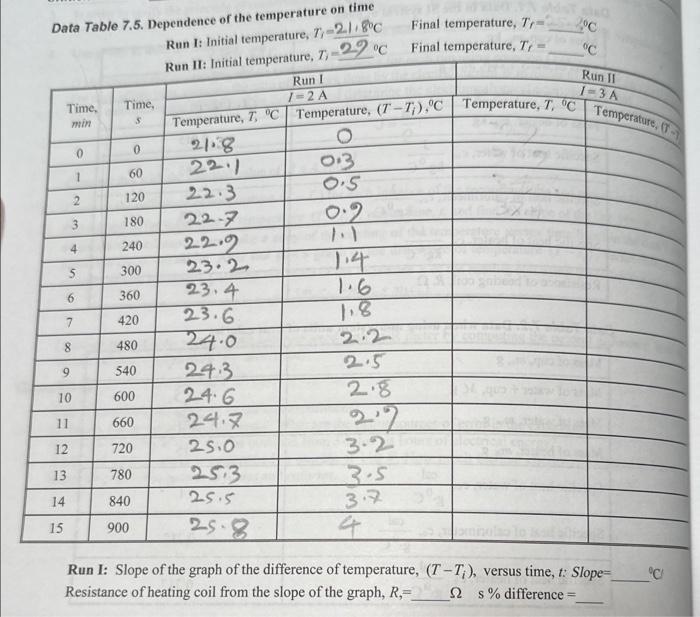 Data Table 7.5. Dependence of the temperature on time
Run I: Initial temperature, Ti=21.8°C Final temperature, Tf= °C
Run II: Initial temperature, Ti=29 °C Final temperature, Tf = °C
Run I Run II
Time, min Time, s I=2 A I=3 A
Temperature, T, °C Temperature, (T−Ti),°C Temperature, T, °C Temperature, (T-T
0 0 21.8 0
1 60 22.1 0.3
2 120 22.3 0.5
3 180 22.7 0.9
4 240 22.9 1.1
5 300 23.2 1.4
6 360 23.4 1.6
7 420 23.6 1.8
8 480 24.0 2.2
9 540 24.3 2.5
10 600 24.6 2.8
11 660 24.7 2.9
12 720 25.0 3.2
13 780 25.3 3.5
14 840 25.5 3.7
15 900 25.8 4
Run I: Slope of the graph of the difference of temperature, (T−Ti), versus time, t: Slope= °C/
Resistance of heating coil from the slope of the graph, R,= Ω s % difference =